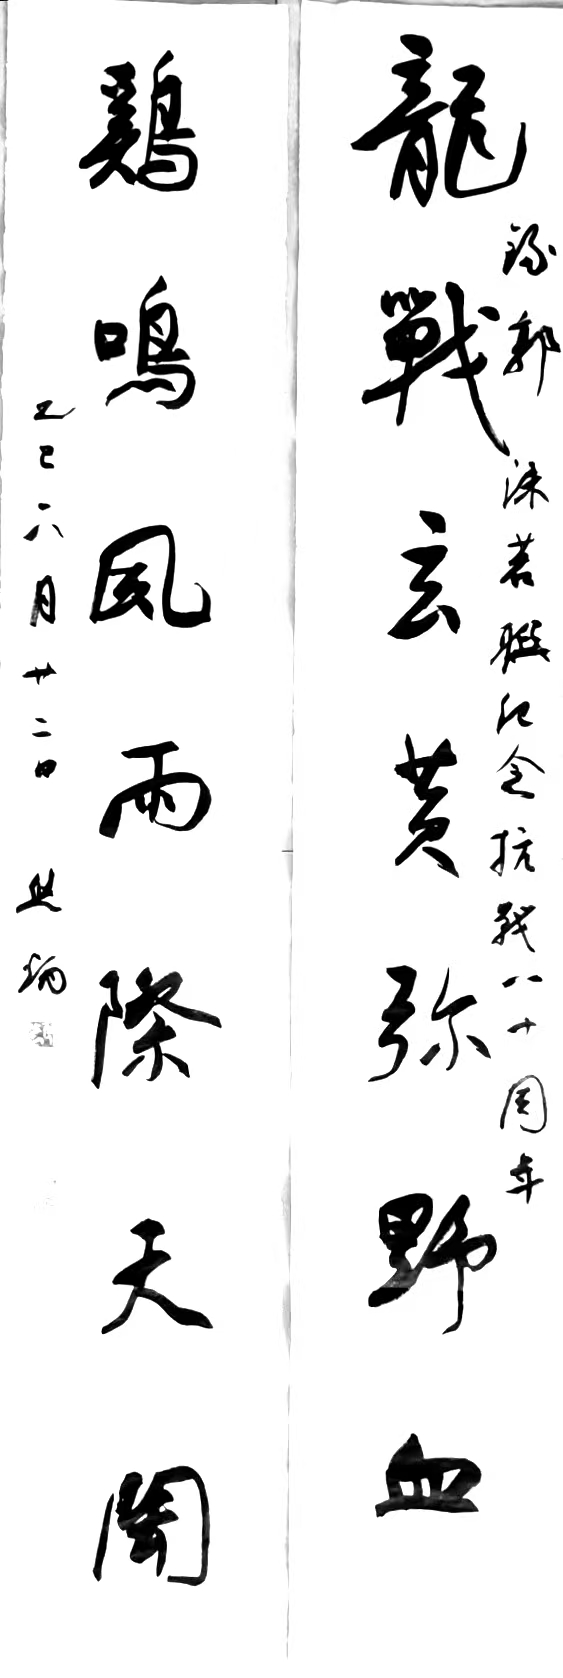 龍戰玄黃弥野血
錄郭沫若聯紀念抗戰八十周年
鷄鳴風雨際天聞
乙巳六月廿二日